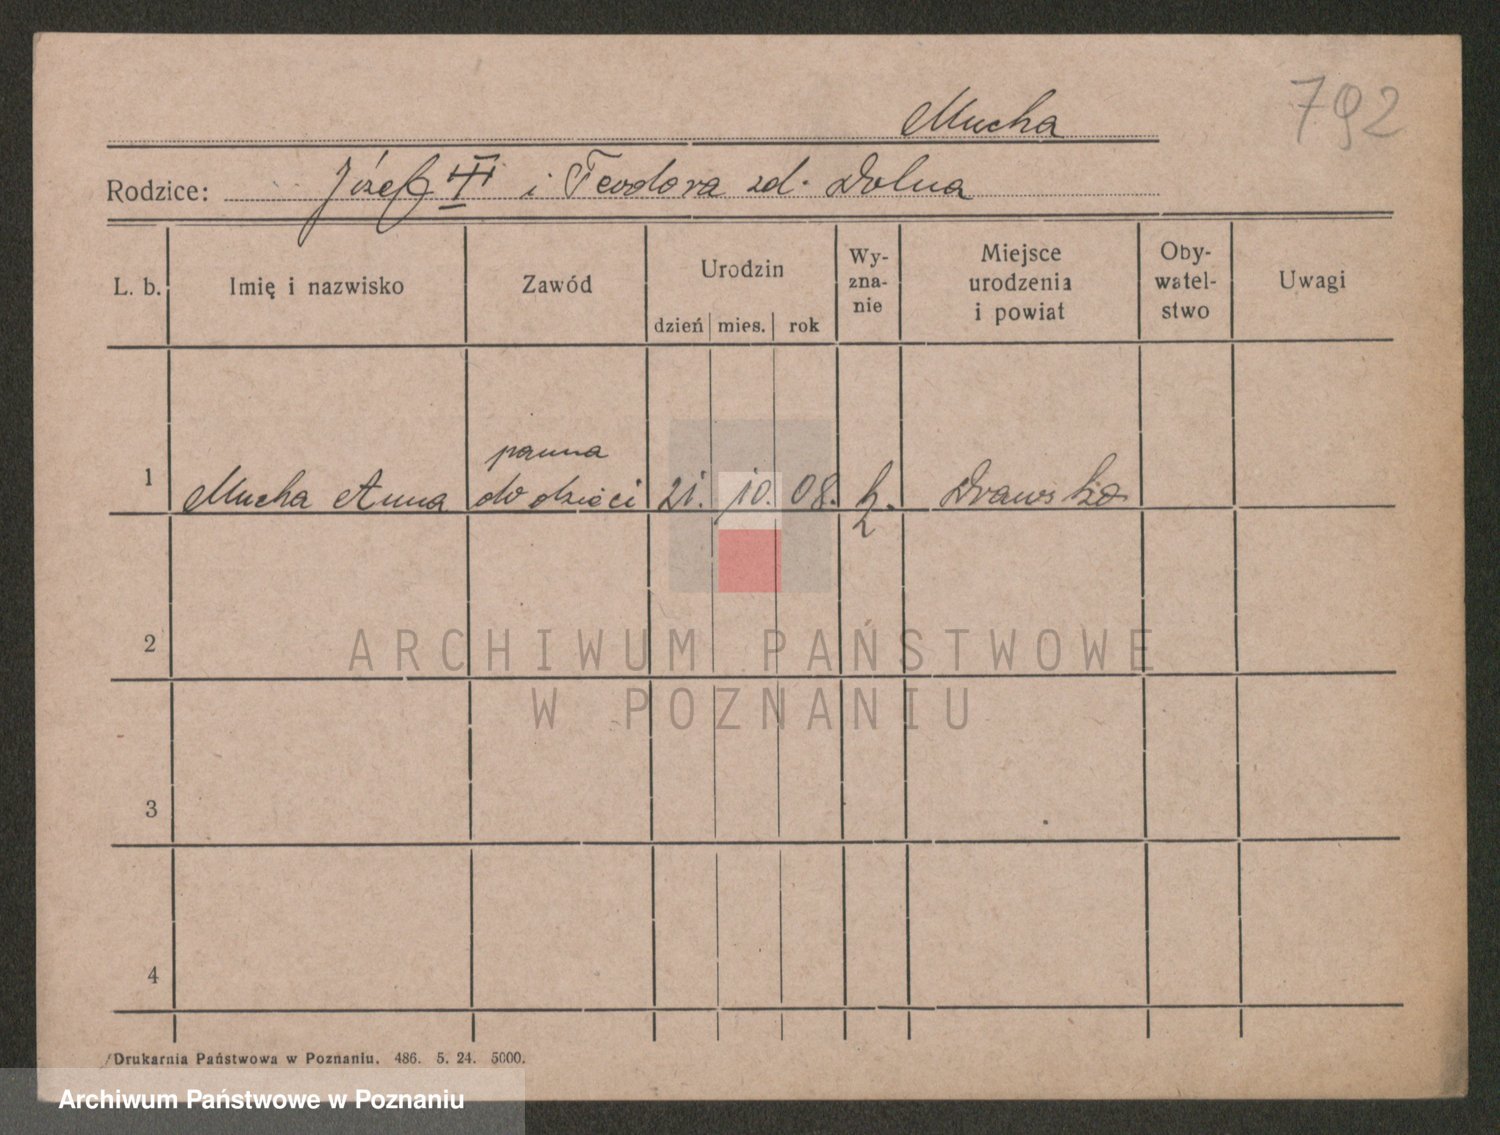 792
Mucha
Rodzice: Józef III i Teodora zd. Dolna
L. b. Imię i nazwisko Zawód Urodzin dzień mies. rok Wy-zna-nie Miejsce urodzenia i powiat Oby-watel-stwo Uwagi
panna
1 Mucha Anna do dzieci 21. 10. 08. k. Drawsko
2
ARCHIWUM PAŃSTWOWE
W POZNANIU
3
4
Drukarnia Państwowa w Poznaniu. 486. 5. 24. 5000.
Archiwum Państwowe w Poznaniu